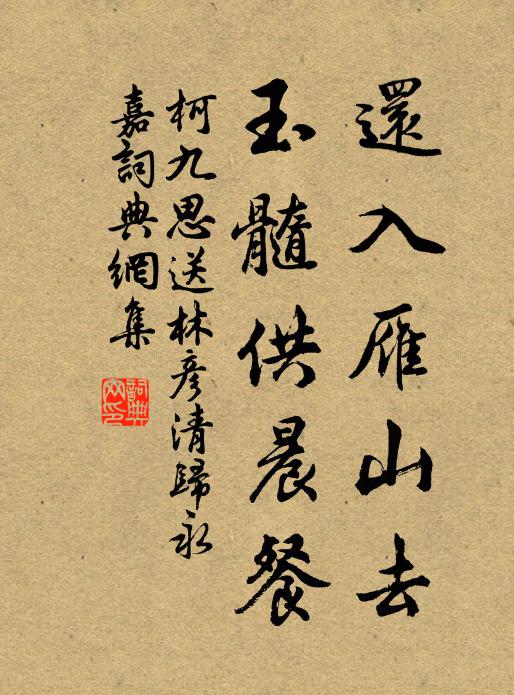 還入雁山去
玉髓供晨餐
柯九思送林彥清歸永
嘉詞典網集
詞典
網印